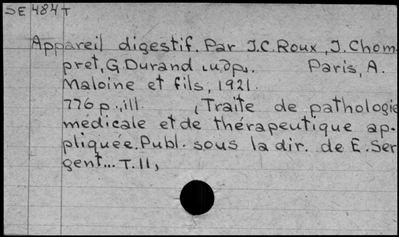 SE484T
Appareil digestif. Par J.C. Roux, J. Chom-
pret, G Durand Paris, A.
Maloine et fils, 1921.
776 p., ill. (Traite de pathologie
médicale et de thérapeutique ap-
pliquée. Publ. sous la dir. de E. Ser
gent... T. 11,